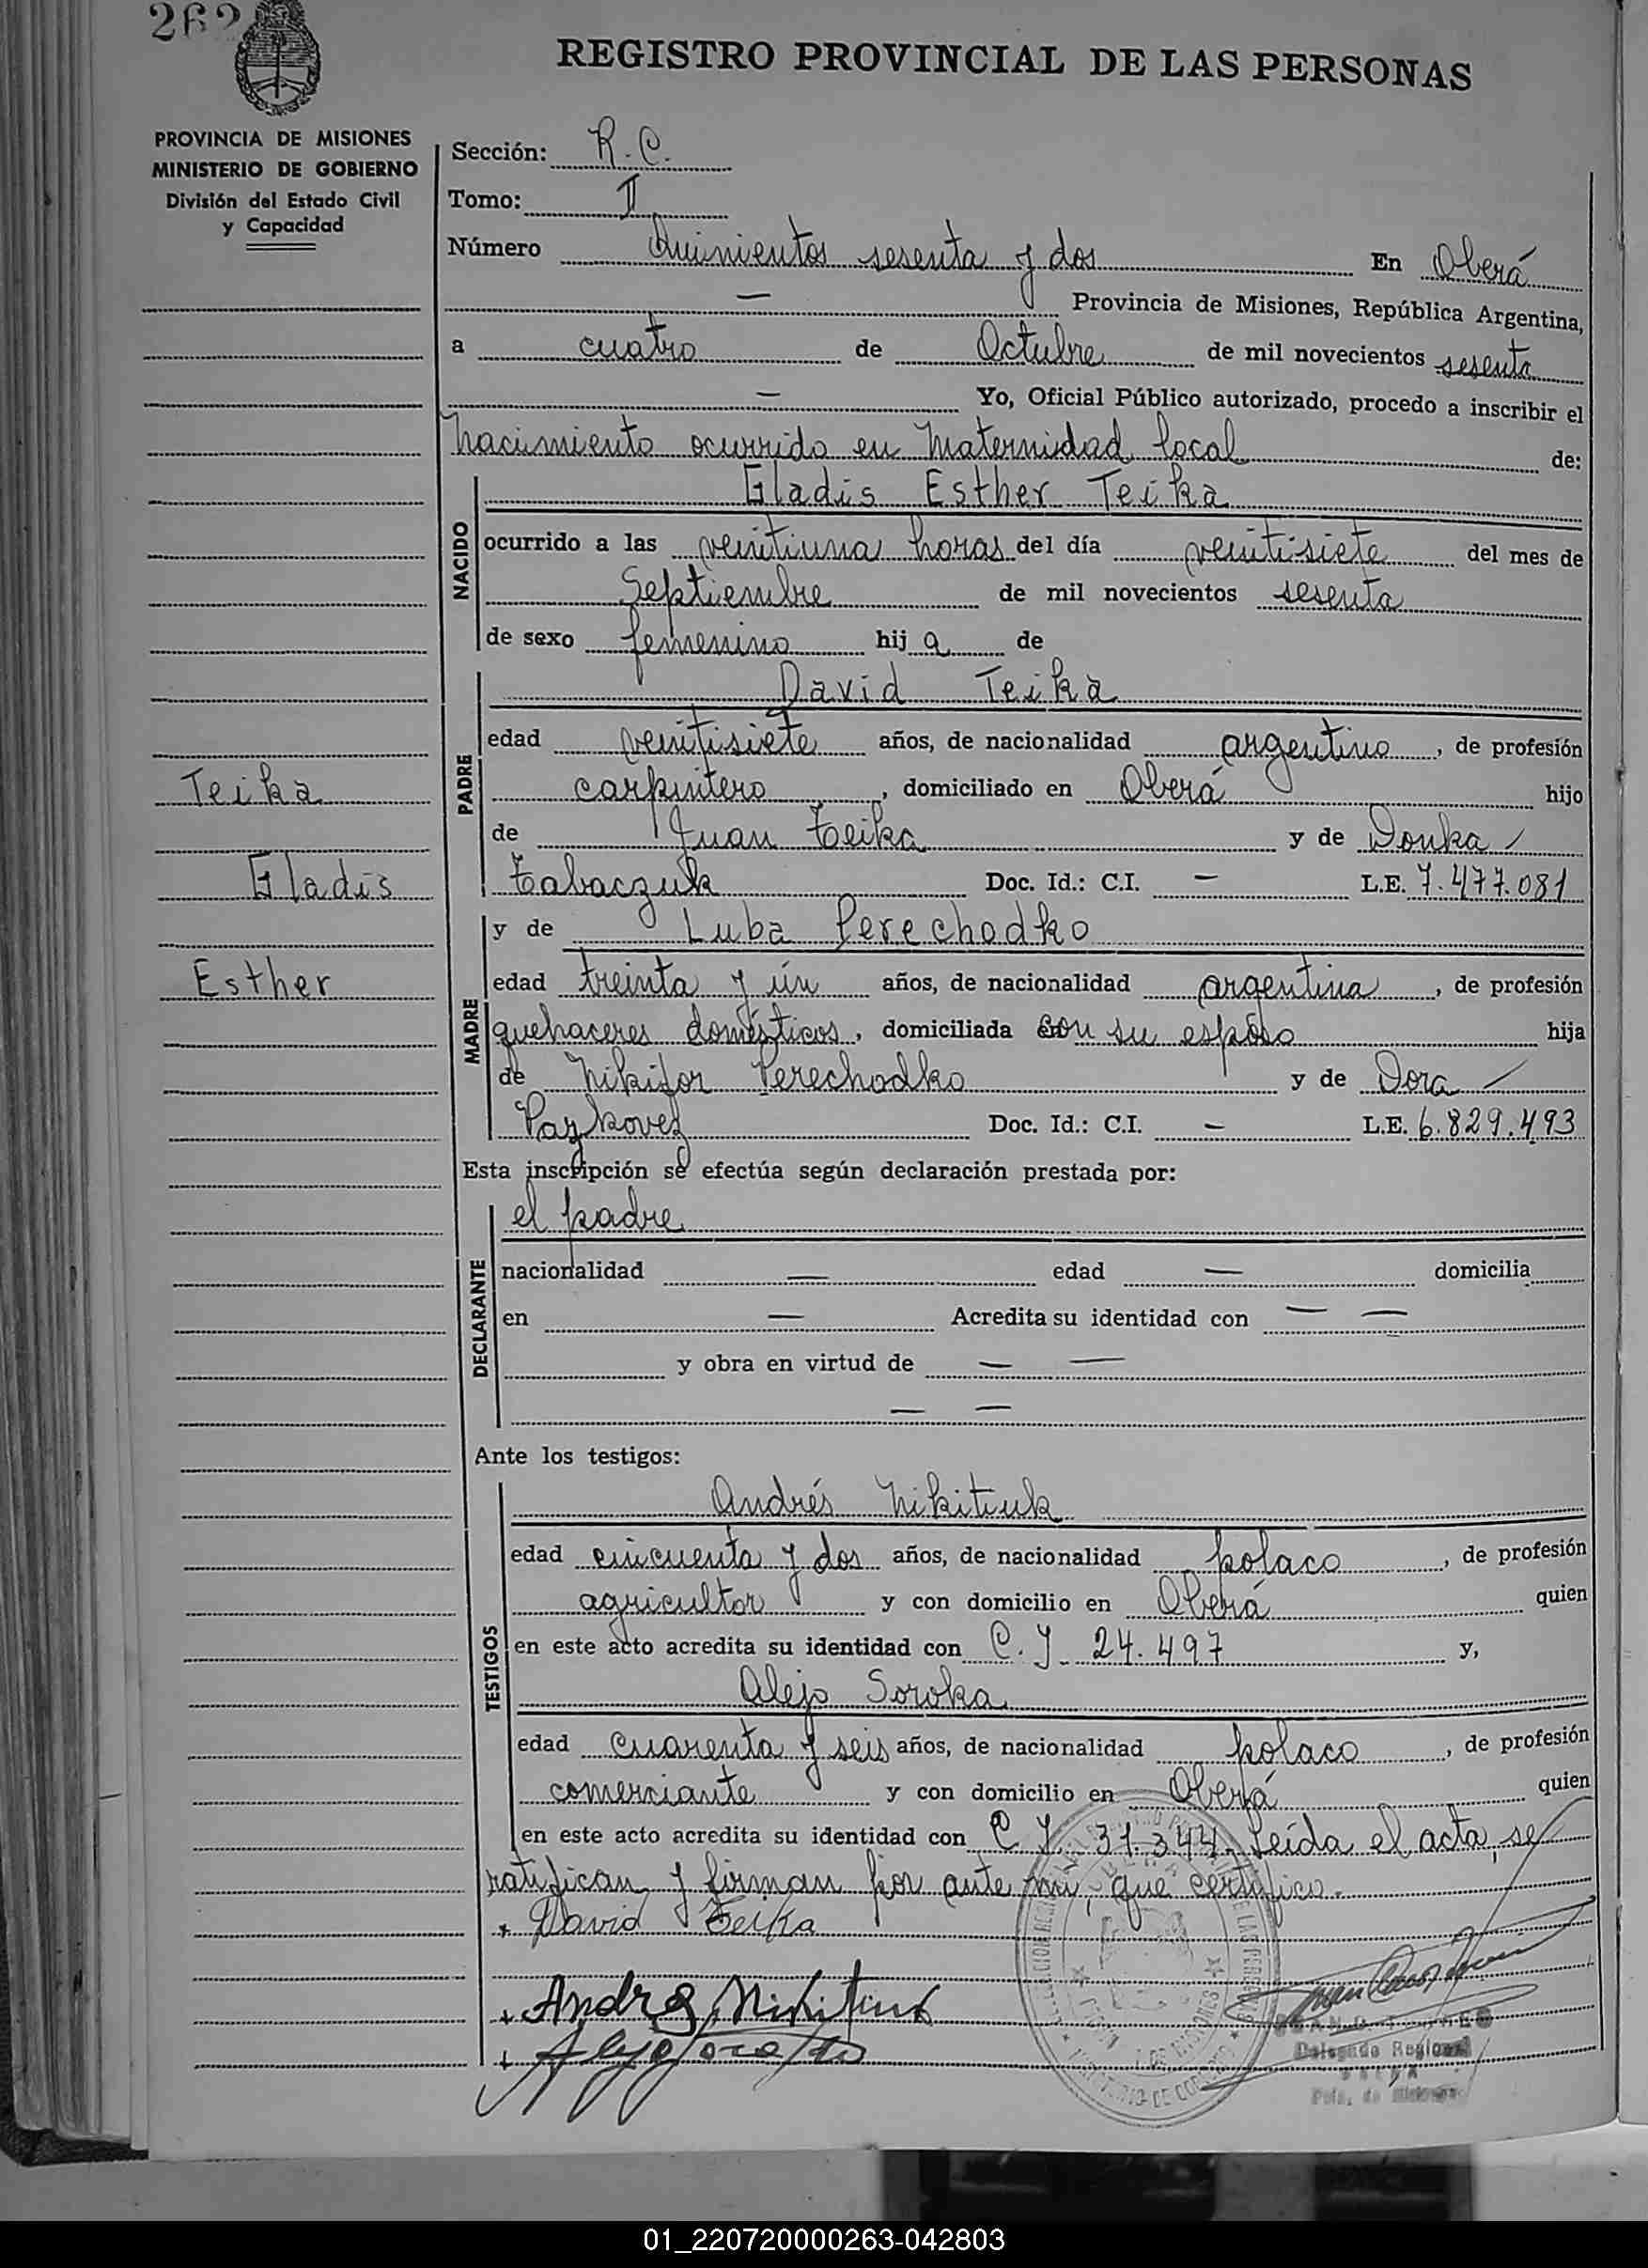 262
REGISTRO PROVINCIAL DE LAS PERSONAS
PROVINCIA DE MISIONES
MINISTERIO DE GOBIERNO
División del Estado Civil
y Capacidad
Sección: R.C.
Tomo: II
Número Quinientos sesenta y dos En Oberá
— Provincia de Misiones, República Argentina,
a cuatro de Octubre de mil novecientos sesenta
— Yo, Oficial Público autorizado, procedo a inscribir el
nacimiento ocurrido en Maternidad local de:
NACIDO
Gladis Esther Teika
ocurrido a las veintiuna horas del día veintisiete del mes de
Septiembre de mil novecientos sesenta
de sexo femenino hij a de
PADRE
David Teika
edad veintisiete años, de nacionalidad argentino, de profesión
carpintero, domiciliado en Oberá hijo
de Juan Teika y de Donka
Tabaczuk Doc. Id.: C.I. — L.E. 7.477.081
Teika
Gladis
Esther
MADRE
y de Luba Perechodko
edad treinta y ún años, de nacionalidad argentina, de profesión
quehaceres domésticos, domiciliada con su esposo hija
de Nikifor Perechodko y de Dora
Pazkovez Doc. Id.: C.I. — L.E. 6.829.493
Esta inscripción se efectúa según declaración prestada por:
DECLARANTE
el padre
nacionalidad — edad — domicilia
en — Acredita su identidad con — —
y obra en virtud de — —
— —
Ante los testigos:
TESTIGOS
Andrés Nikituk
edad cincuenta y dos años, de nacionalidad polaco, de profesión
agricultor y con domicilio en Oberá quien
en este acto acredita su identidad con C.I. 24.497 y,
Alejo Soroka
edad cuarenta y seis años, de nacionalidad polaco, de profesión
comerciante y con domicilio en Oberá quien
en este acto acredita su identidad con C.I. 31.344. Leída el acta, se
ratifican y firman por ante mí, que certifico.
+ David Teika
+ Andres Nikituk
+
Delegado Regional
01_220720000263-042803